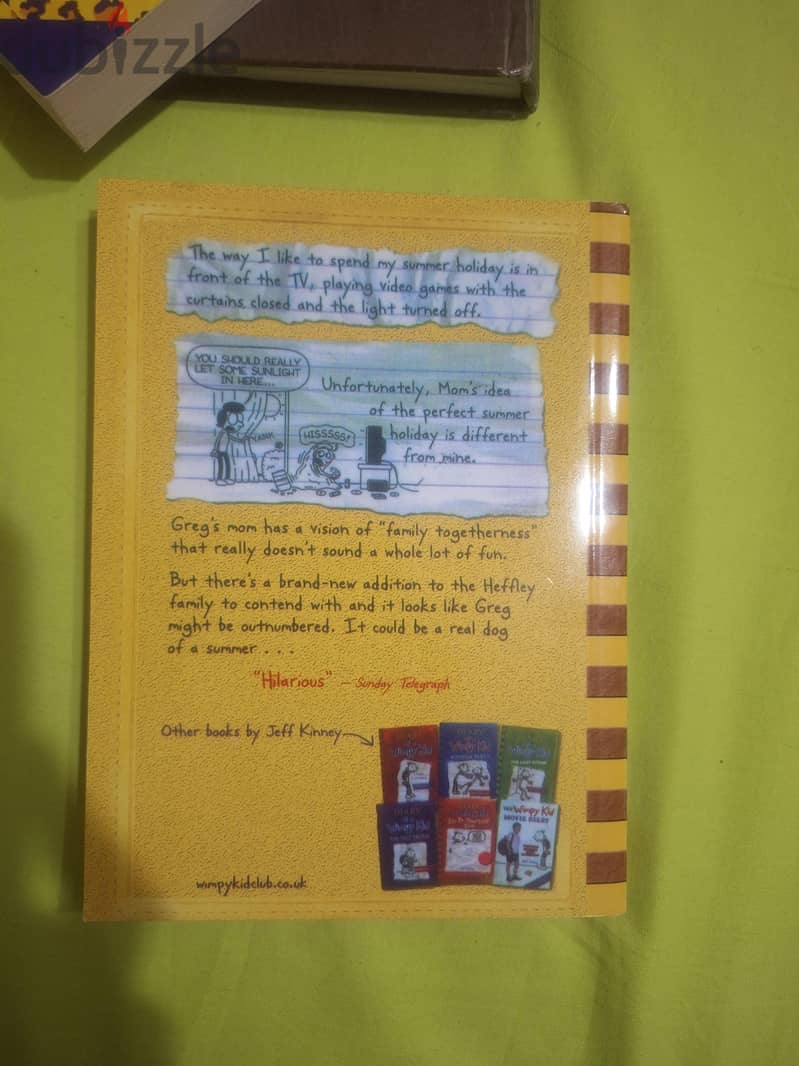 dubizzle
The way I like to spend my summer holiday is in
front of the TV, playing video games with the
curtains closed and the light turned off.
YOU SHOULD REALLY
LET SOME SUNLIGHT
IN HERE...
YANK
HISSSSS!
Unfortunately, Mom's idea
of the perfect summer
holiday is different
from mine.
Greg's mom has a vision of "family togetherness"
that really doesn't sound a whole lot of fun.
But there's a brand-new addition to the Heffley
family to contend with and it looks like Greg
might be outnumbered. It could be a real dog
of a summer . . .
"Hilarious" – Sunday Telegraph
Other books by Jeff Kinney
Wimpy Kid
DIARY
of a
Wimpy Kid
Wimpy Kid
THE LAST STRAW
DIARY
of a
Wimpy Kid
THE Wimpy Kid
MOVIE DIARY
wimpykidclub.co.uk